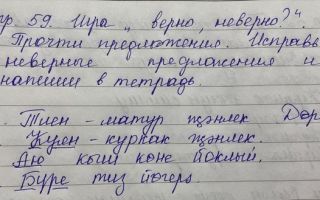 тр 59. Игра „ верно, неверно?"
Прочти предложения. Исправь
неверные предложения и
напиши в тетрадь.
Тиен - матур җәнлек Дөр
Куян - куркак җәнлек.
Аю кыш көне йоклый.
Бүре тиз йөгерә